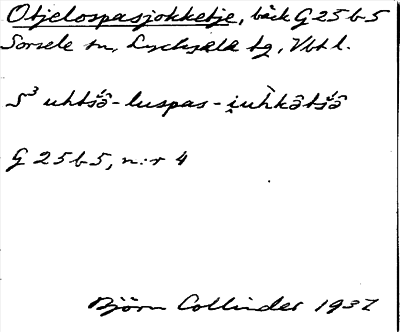 Otjelospasjokketje, bäck G 25 b 5
Sorsele sn, Lycksele tg, Vbt l.
S³ uhtśə̂-luspas-i̯uh̀kətśə̂
G 25 b 5, n:r 4
Björn Collinder 1937